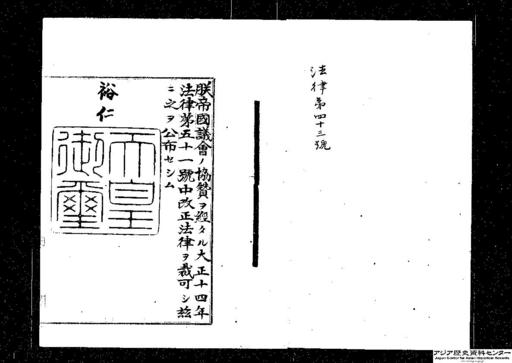 法律第四十三號
朕帝國議會ノ協贊ヲ經タル大正十四年
法律第五十一號中改正法律ヲ裁可シ玆
ニ之ヲ公布セシム
裕仁
天皇
御璽
アジア歴史資料センター
Japan Center for Asian Historical Records